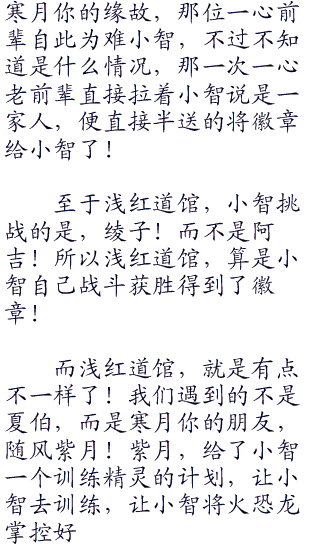 寒月你的缘故，那位一心前
辈自此为难小智，不过不知
道是什么情况，那一次一心
老前辈直接拉着小智说是一
家人，便直接半送的将徽章
给小智了！
至于浅红道馆，小智挑
战的是，绫子！而不是阿
吉！所以浅红道馆，算是小
智自己战斗获胜得到了徽
章！
而浅红道馆，就是有点
不一样了！我们遇到的不是
夏伯，而是寒月你的朋友，
随风紫月！紫月，给了小智
一个训练精灵的计划，让小
智去训练，让小智将火恐龙
掌控好